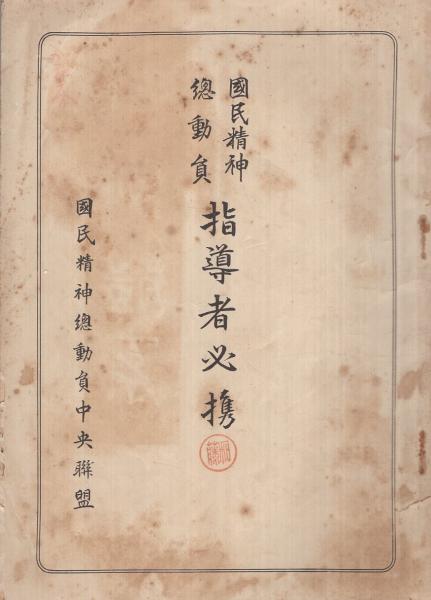 國民精神
總動員
指導者必携
國民精神總動員中央聯盟